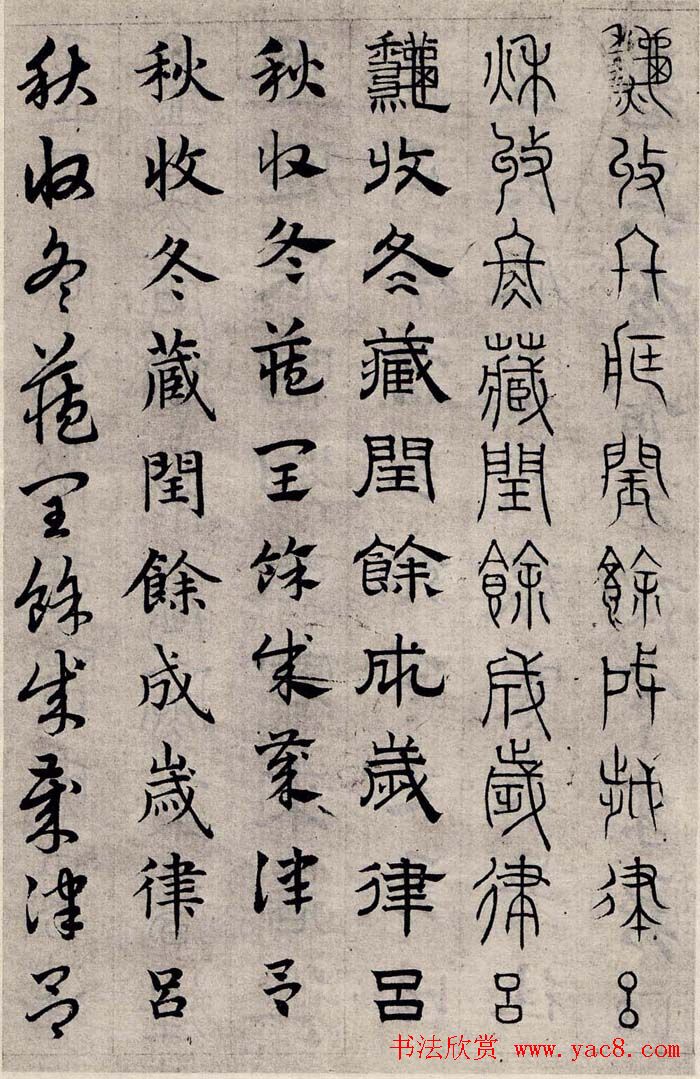 龝收冬藏閏餘成歲律呂
秌收冬藏閏餘成歲律呂
龝收冬藏閏餘成歲律呂
秋收冬藏閏餘成歲律呂
秋收冬蔵閏餘成歳律呂
秋收冬藏閏餘成歲律呂
书法欣赏 www.yac8.com